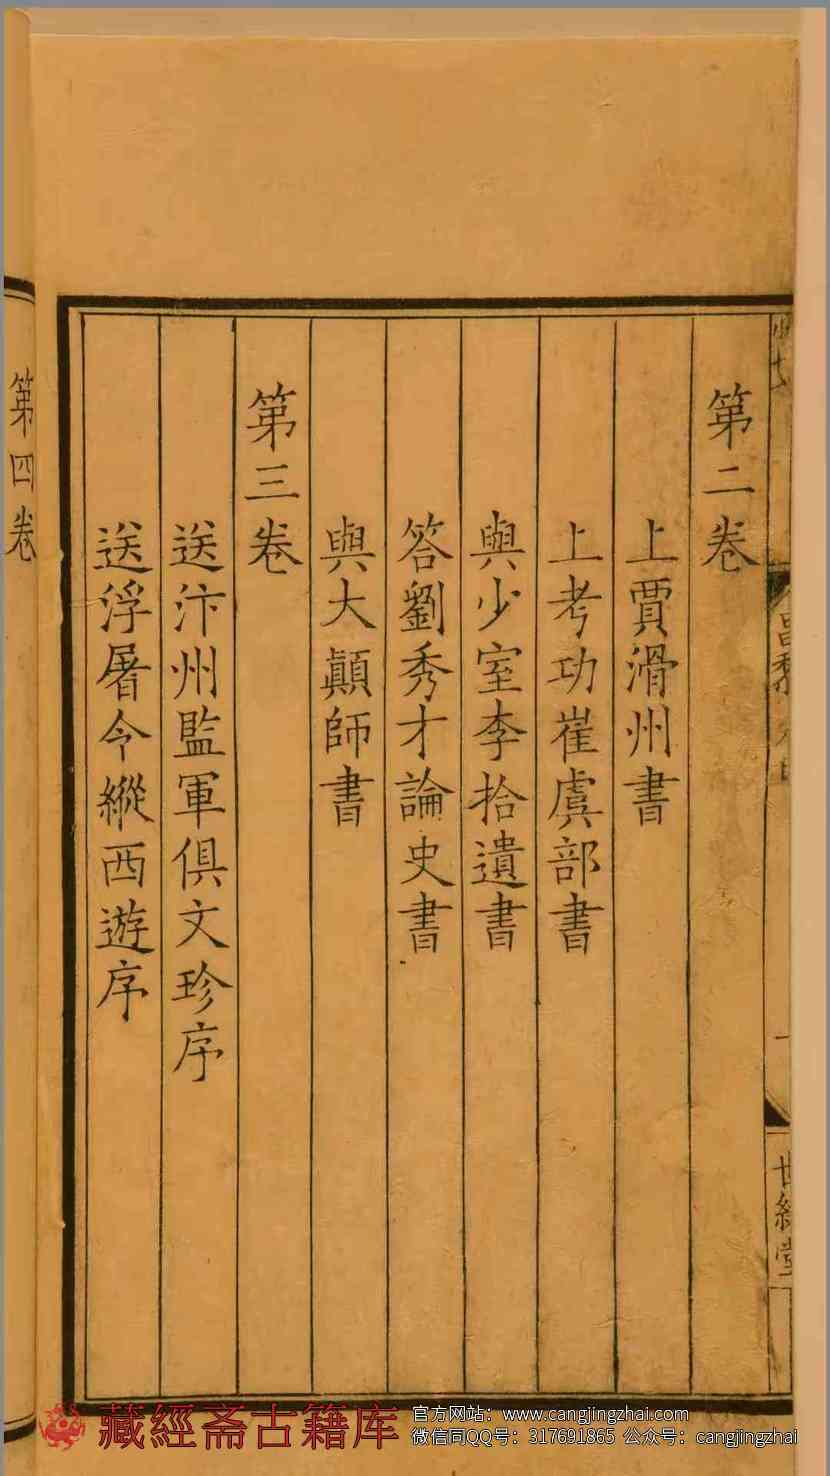 第二卷
上賈滑州書
上考功崔虞部書
與少室李拾遺書
答劉秀才論史書
與大顛師書
第三卷
送汴州監軍俱文珍序
送浮屠令縱西遊序
第四卷
世綵堂
藏經斋古籍库
官方网站：www.cangjingzhai.com
微信同QQ号：317691865 公众号：cangjingzhai